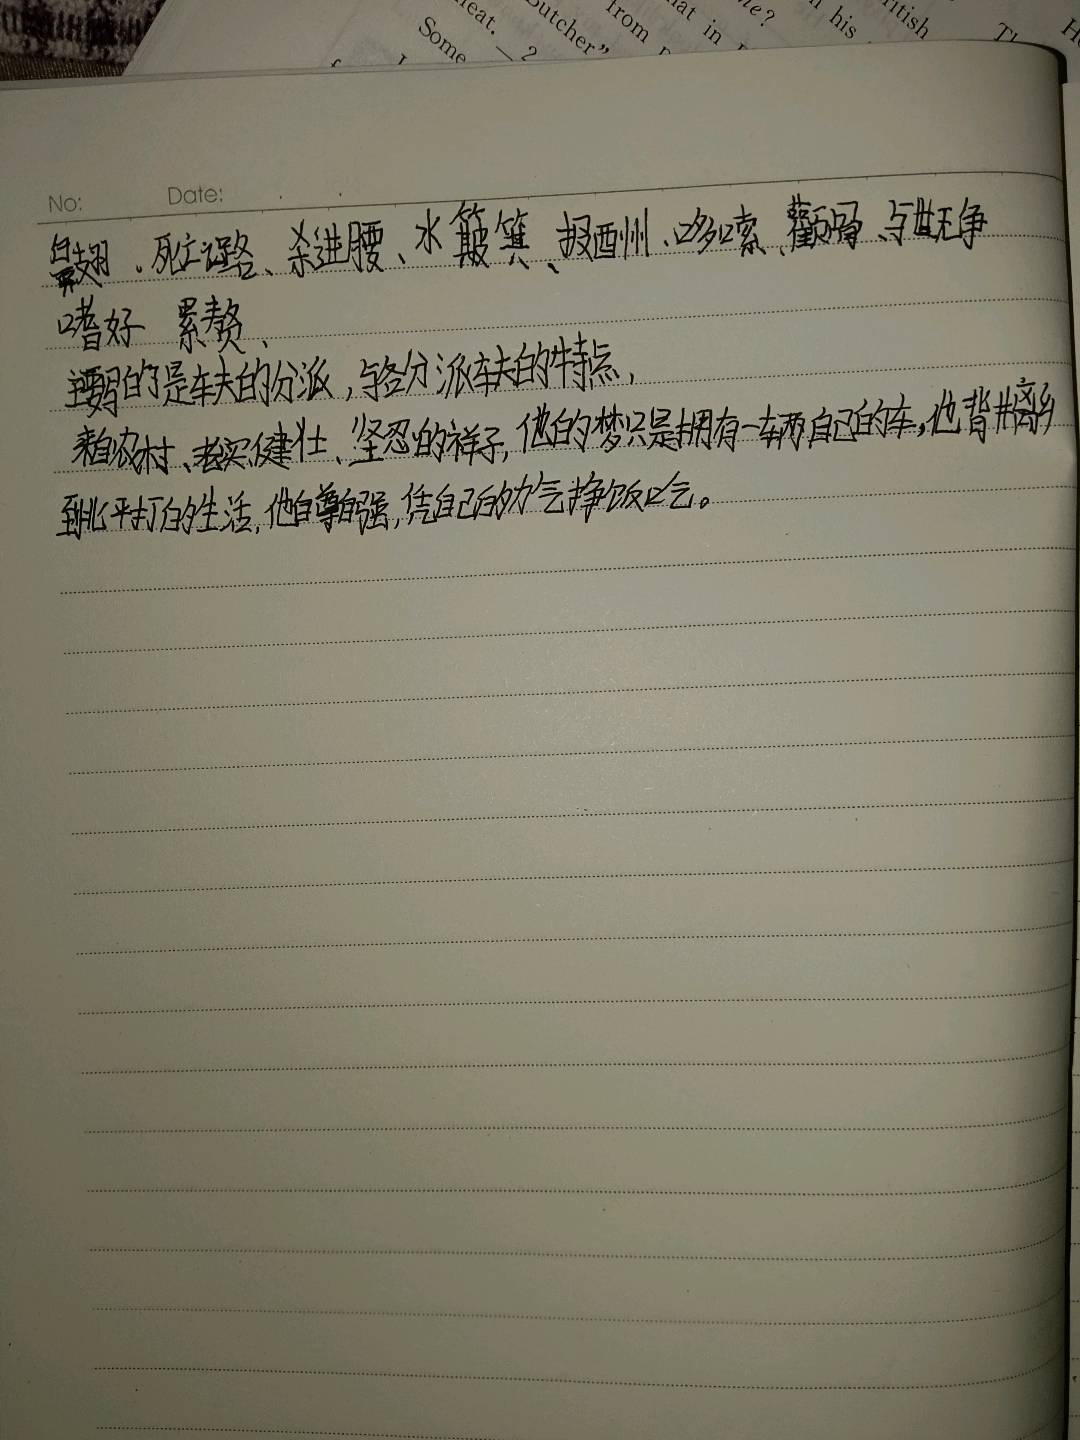 eat.
Butcher"
from
hat in
me?
n his
ritish
Some
— 2
No: Date:
鼻翅、死亡路、杀进腰、水簸箕、报酬、哆嗦、颧骨、与世无争
嗜好 累赘、
主要写的了是车夫的分派，与各分派车夫的特点，
来自农村、老实健壮、坚忍的祥子，他的梦只是拥有一车两自己的车，他背井离乡
到北平打的生活，他自尊自强，凭自己的力气挣饭口乞。